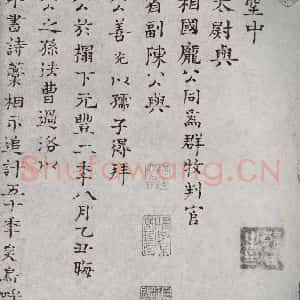 聖中
太尉與
相國龐公同爲群牧判官
省副陳公與
公善光以孺子得拜
公於榻下元豐二年八月乙丑晦
公之孫法曹過洛
書詩藁相示追計五十年矣嗚呼
Shufawang.CN